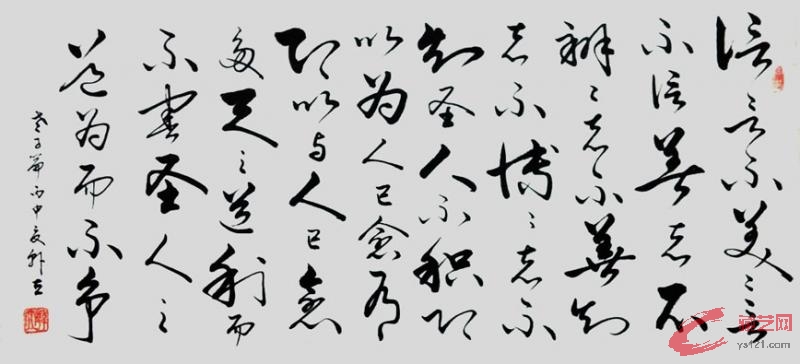 信言不美〻言
不信善者不
辩〻者不善知
者不博〻者不
知圣人不积既
以为人己愈有
既以与人己愈
多天之道利而
不害圣人之
道为而不争
老子篇丙申夏
艺网
ys121.com